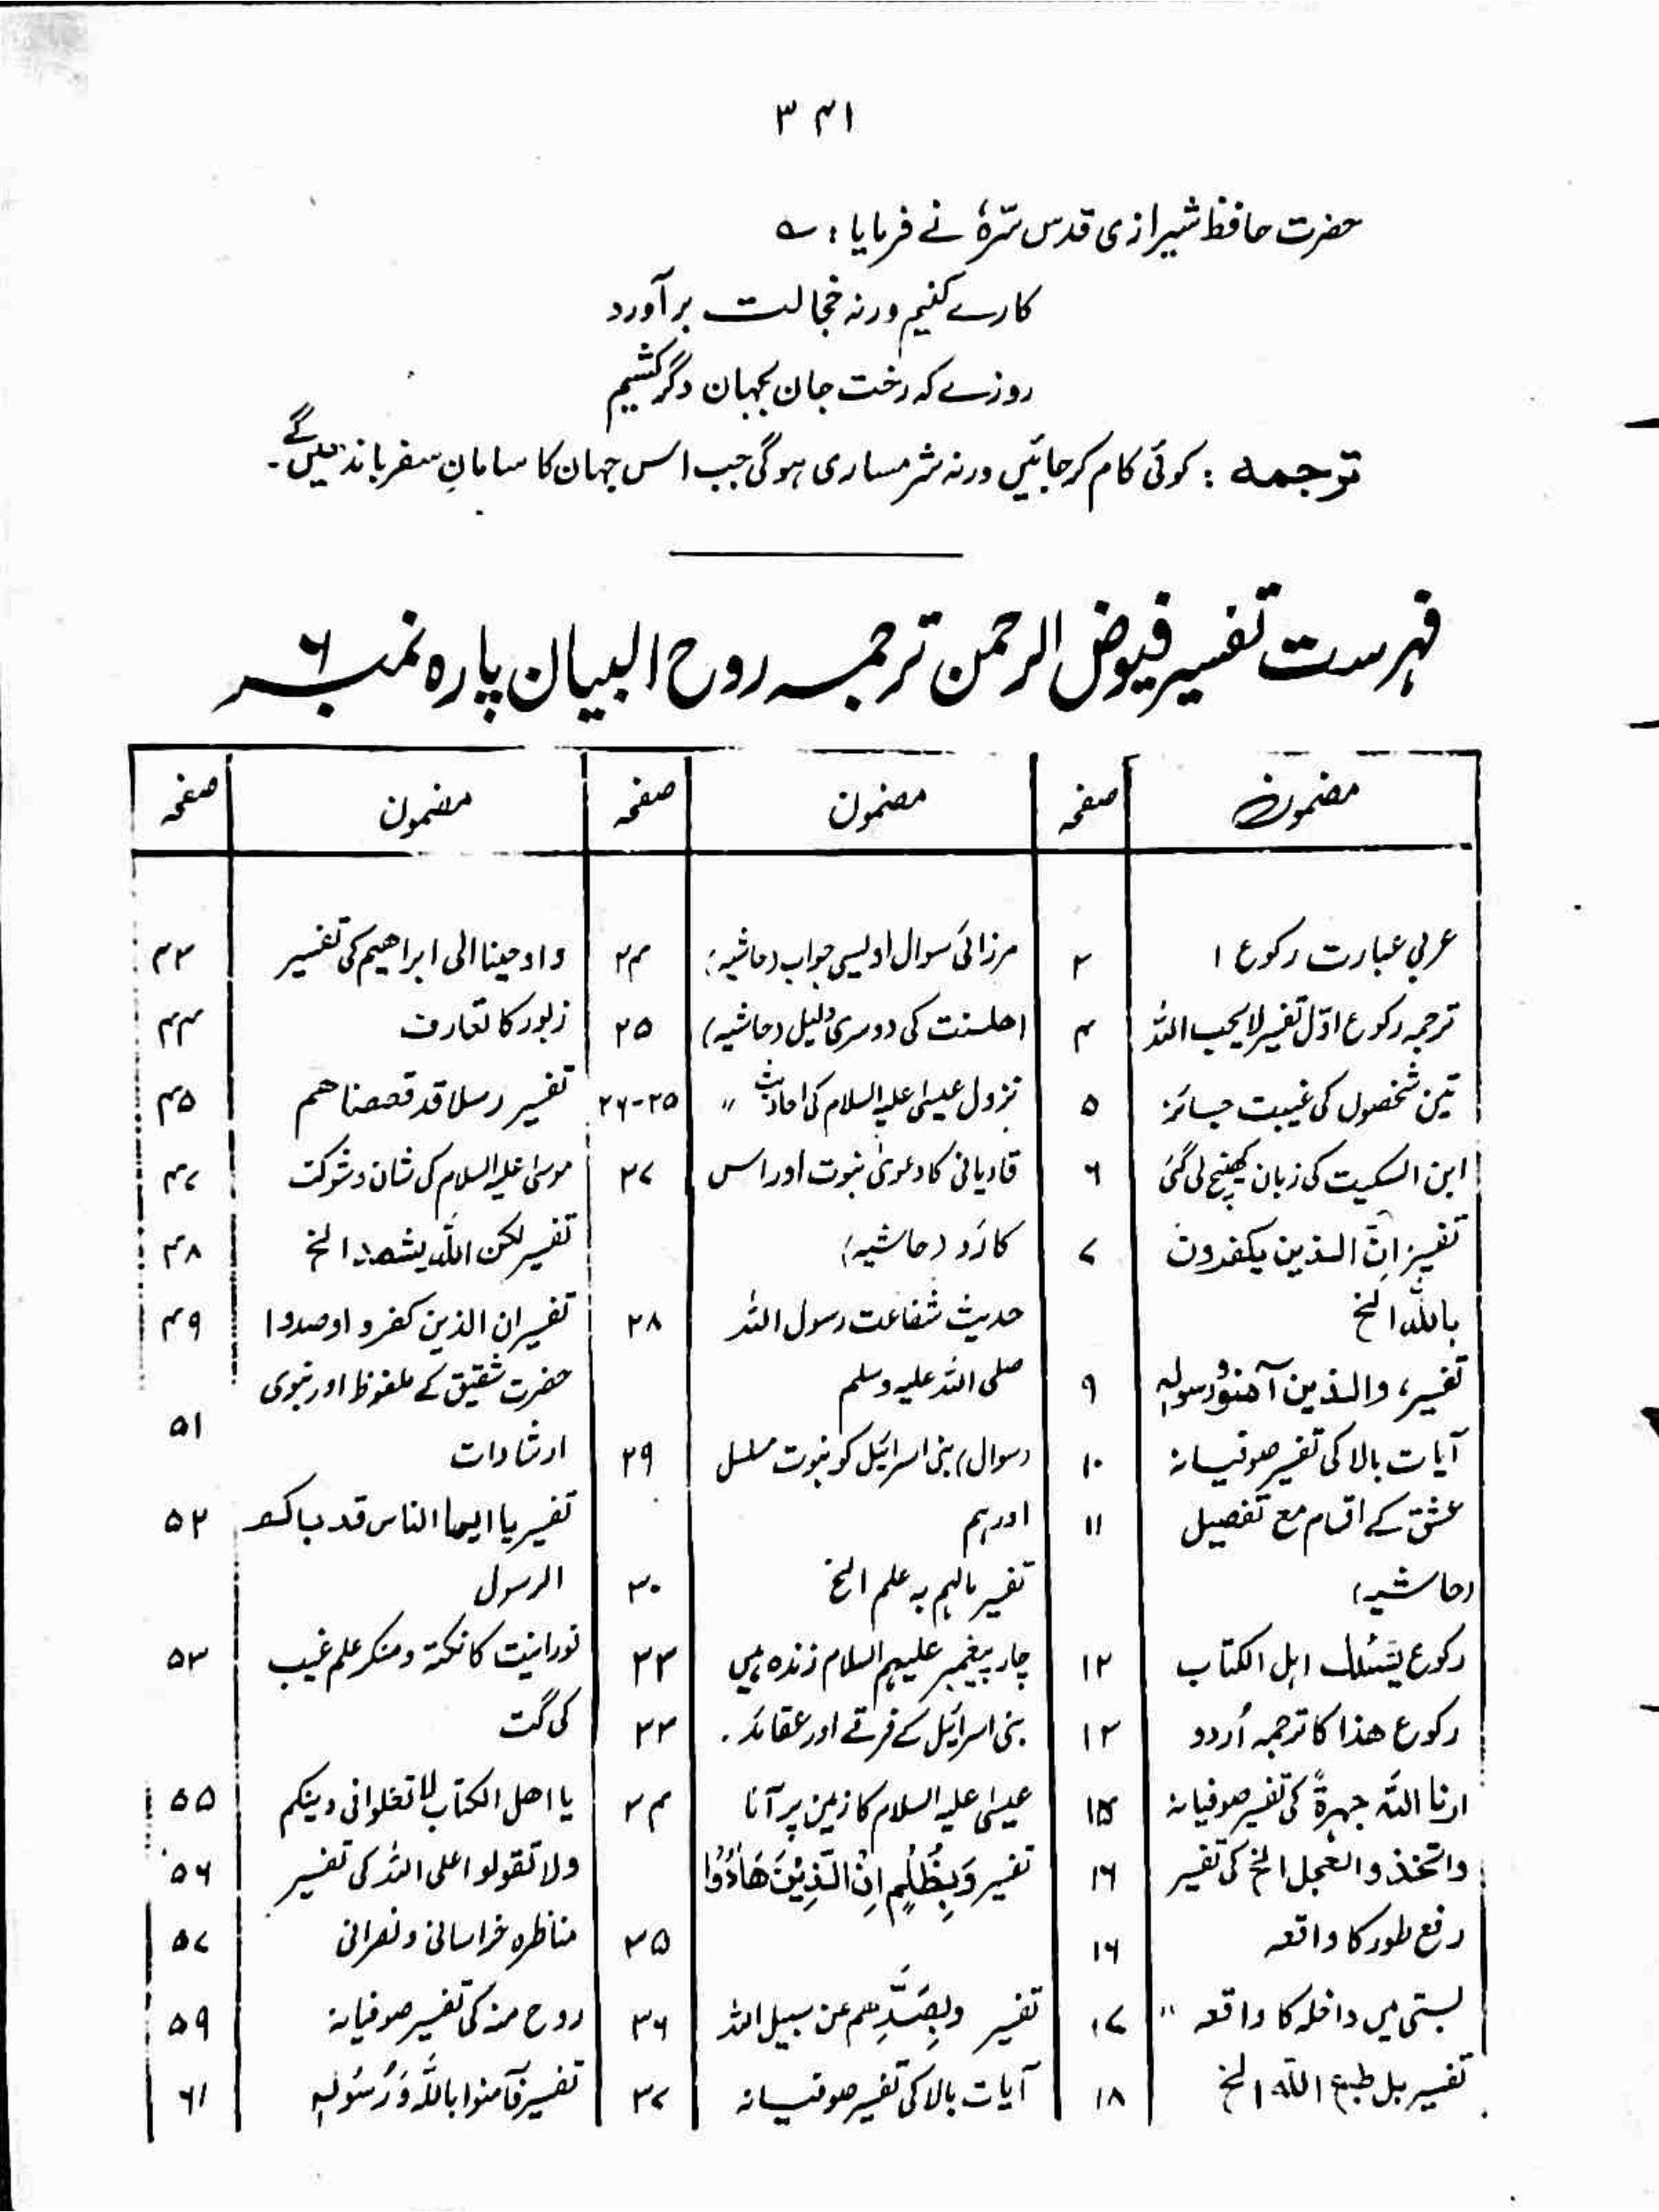 ۳۴۱
حضرت حافظ شیرازی قدس سرہٗ نے فرمایا : ؎
کارے کنیم ورنہ خجالت برآورد
روزے کہ رخت جان بجہان دگر کشیم
ترجمہ : کوئی کام کر جائیں ورنہ شرمساری ہوگی جب اس جہان کا سامانِ سفر باندھیں گے۔
فہرست تفسیر فیوض الرحمٰن ترجمہ روح البیان پارہ نمبر ۶
مضمون صفحہ مضمون صفحہ مضمون صفحہ
عربی عبارت رکوع ۱ ۲ مرزائی سوال اویسی جواب (حاشیہ) ۲۴ واوحینا الی ابراھیم کی تفسیر ۴۳
ترجمہ رکوع اوّل تفسیر لا یحب اللہ ۴ اھلسنت کی دوسری دلیل (حاشیہ) ۲۵ زبور کا تعارف ۴۴
تین شخصوں کی غیبت جائز ۵ نزول عیسٰی علیہ السلام کی احادیث " ۲۵-۲۶ تفسیر رسلا قد قصصناھم ۴۵
ابن السکیت کی زبان کھینچ لی گئی ۶ قادیانی کا دعویٰ نبوت اور اس ۲۷ موسٰی علیہ السلام کی شان و شوکت ۴۷
تفسیر اِنّ الذین یکفرون ۷ کا رَد (حاشیہ) تفسیر لکن اللہ یشھد الخ ۴۸
باللہ الخ حدیث شفاعت رسول اللہ ۲۸ تفسیر ان الذین کفروا وصدوا ۴۹
تفسیر، والذین آمنو ورسولہ ۹ صلی اللہ علیہ وسلم حضرت شقیق کے ملفوظ اور نبوی
آیات بالا کی تفسیر صوفیانہ ۱۰ (سوال) بنی اسرائیل کو نبوت مسلسل ۲۹ ارشادات ۵۱
عشق کے اقسام مع تفصیل ۱۱ اور ہم تفسیر یا ایھا الناس قد جاءکم ۵۲
(حاشیہ) تفسیر مالہم بہ علم الخ ۳۰ الرسول
رکوع یسئلک اہل الکتاب ۱۲ چار پیغمبر علیہم السلام زندہ ہیں ۳۳ نورانیت کا نکتہ و منکر علم غیب ۵۳
رکوع ھذا کا ترجمہ اُردو ۱۳ بنی اسرائیل کے فرقے اور عقائد۔ ۳۳ کی گت
ارنا اللہ جہرۃً کی تفسیر صوفیانہ ۱۵ عیسٰی علیہ السلام کا زمین پر آنا ۳۴ یا اھل الکتاب لا تغلوا فی دینکم ۵۵
واتخذوا العجل الخ کی تفسیر ۱۶ تفسیر وَبِظُلْمٍ اِنْ الَّذِیْنَ ھَادُوْا ولا تقولوا علی اللہ کی تفسیر ۵۶
رفع طور کا واقعہ ۱۶ ۳۵ مناظرہ خراسانی و نصرانی ۵۷
بستی میں داخلہ کا واقعہ " ۱۷ تفسیر وبِصَدِّھم عن سبیل اللہ ۳۶ روح منہ کی تفسیر صوفیانہ ۵۹
تفسیر بل طبع اللہ الخ ۱۸ آیات بالا کی تفسیر صوفیانہ ۳۷ تفسیر فآمنوا باللہ وَرُسُولِہٖ ۶۱